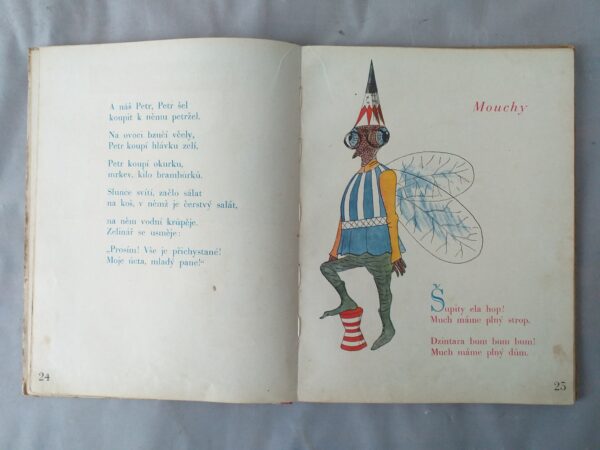 A náš Petr, Petr šel
koupit k němu petržel.
Na ovoci bzučí včely,
Petr koupí hlávku zelí,
Petr koupí okurku,
mrkev, kilo brambůrků.
Slunce svítí, začlo sálat
na koš, v němž je čerstvý salát,
na něm vodní krůpěje.
Zelinář se usměje:
„Prosím! Vše je přichystané!
Moje úcta, mladý pane!“
24
Mouchy
Šupity ela hop!
Much máme plný strop.
Dzintara bum bum bum!
Much máme plný dům.
25